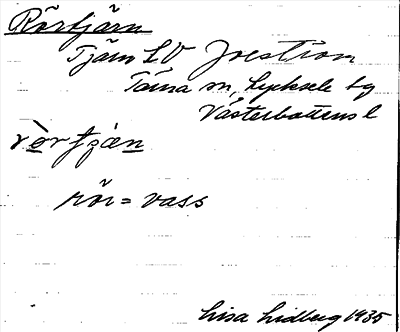 Rörtjärn
Tjärn L V Joeström
Tärna sn, Lycksele tg
Västerbottens l
rörtjæn
rör = vass
Lisa Lidberg 1935